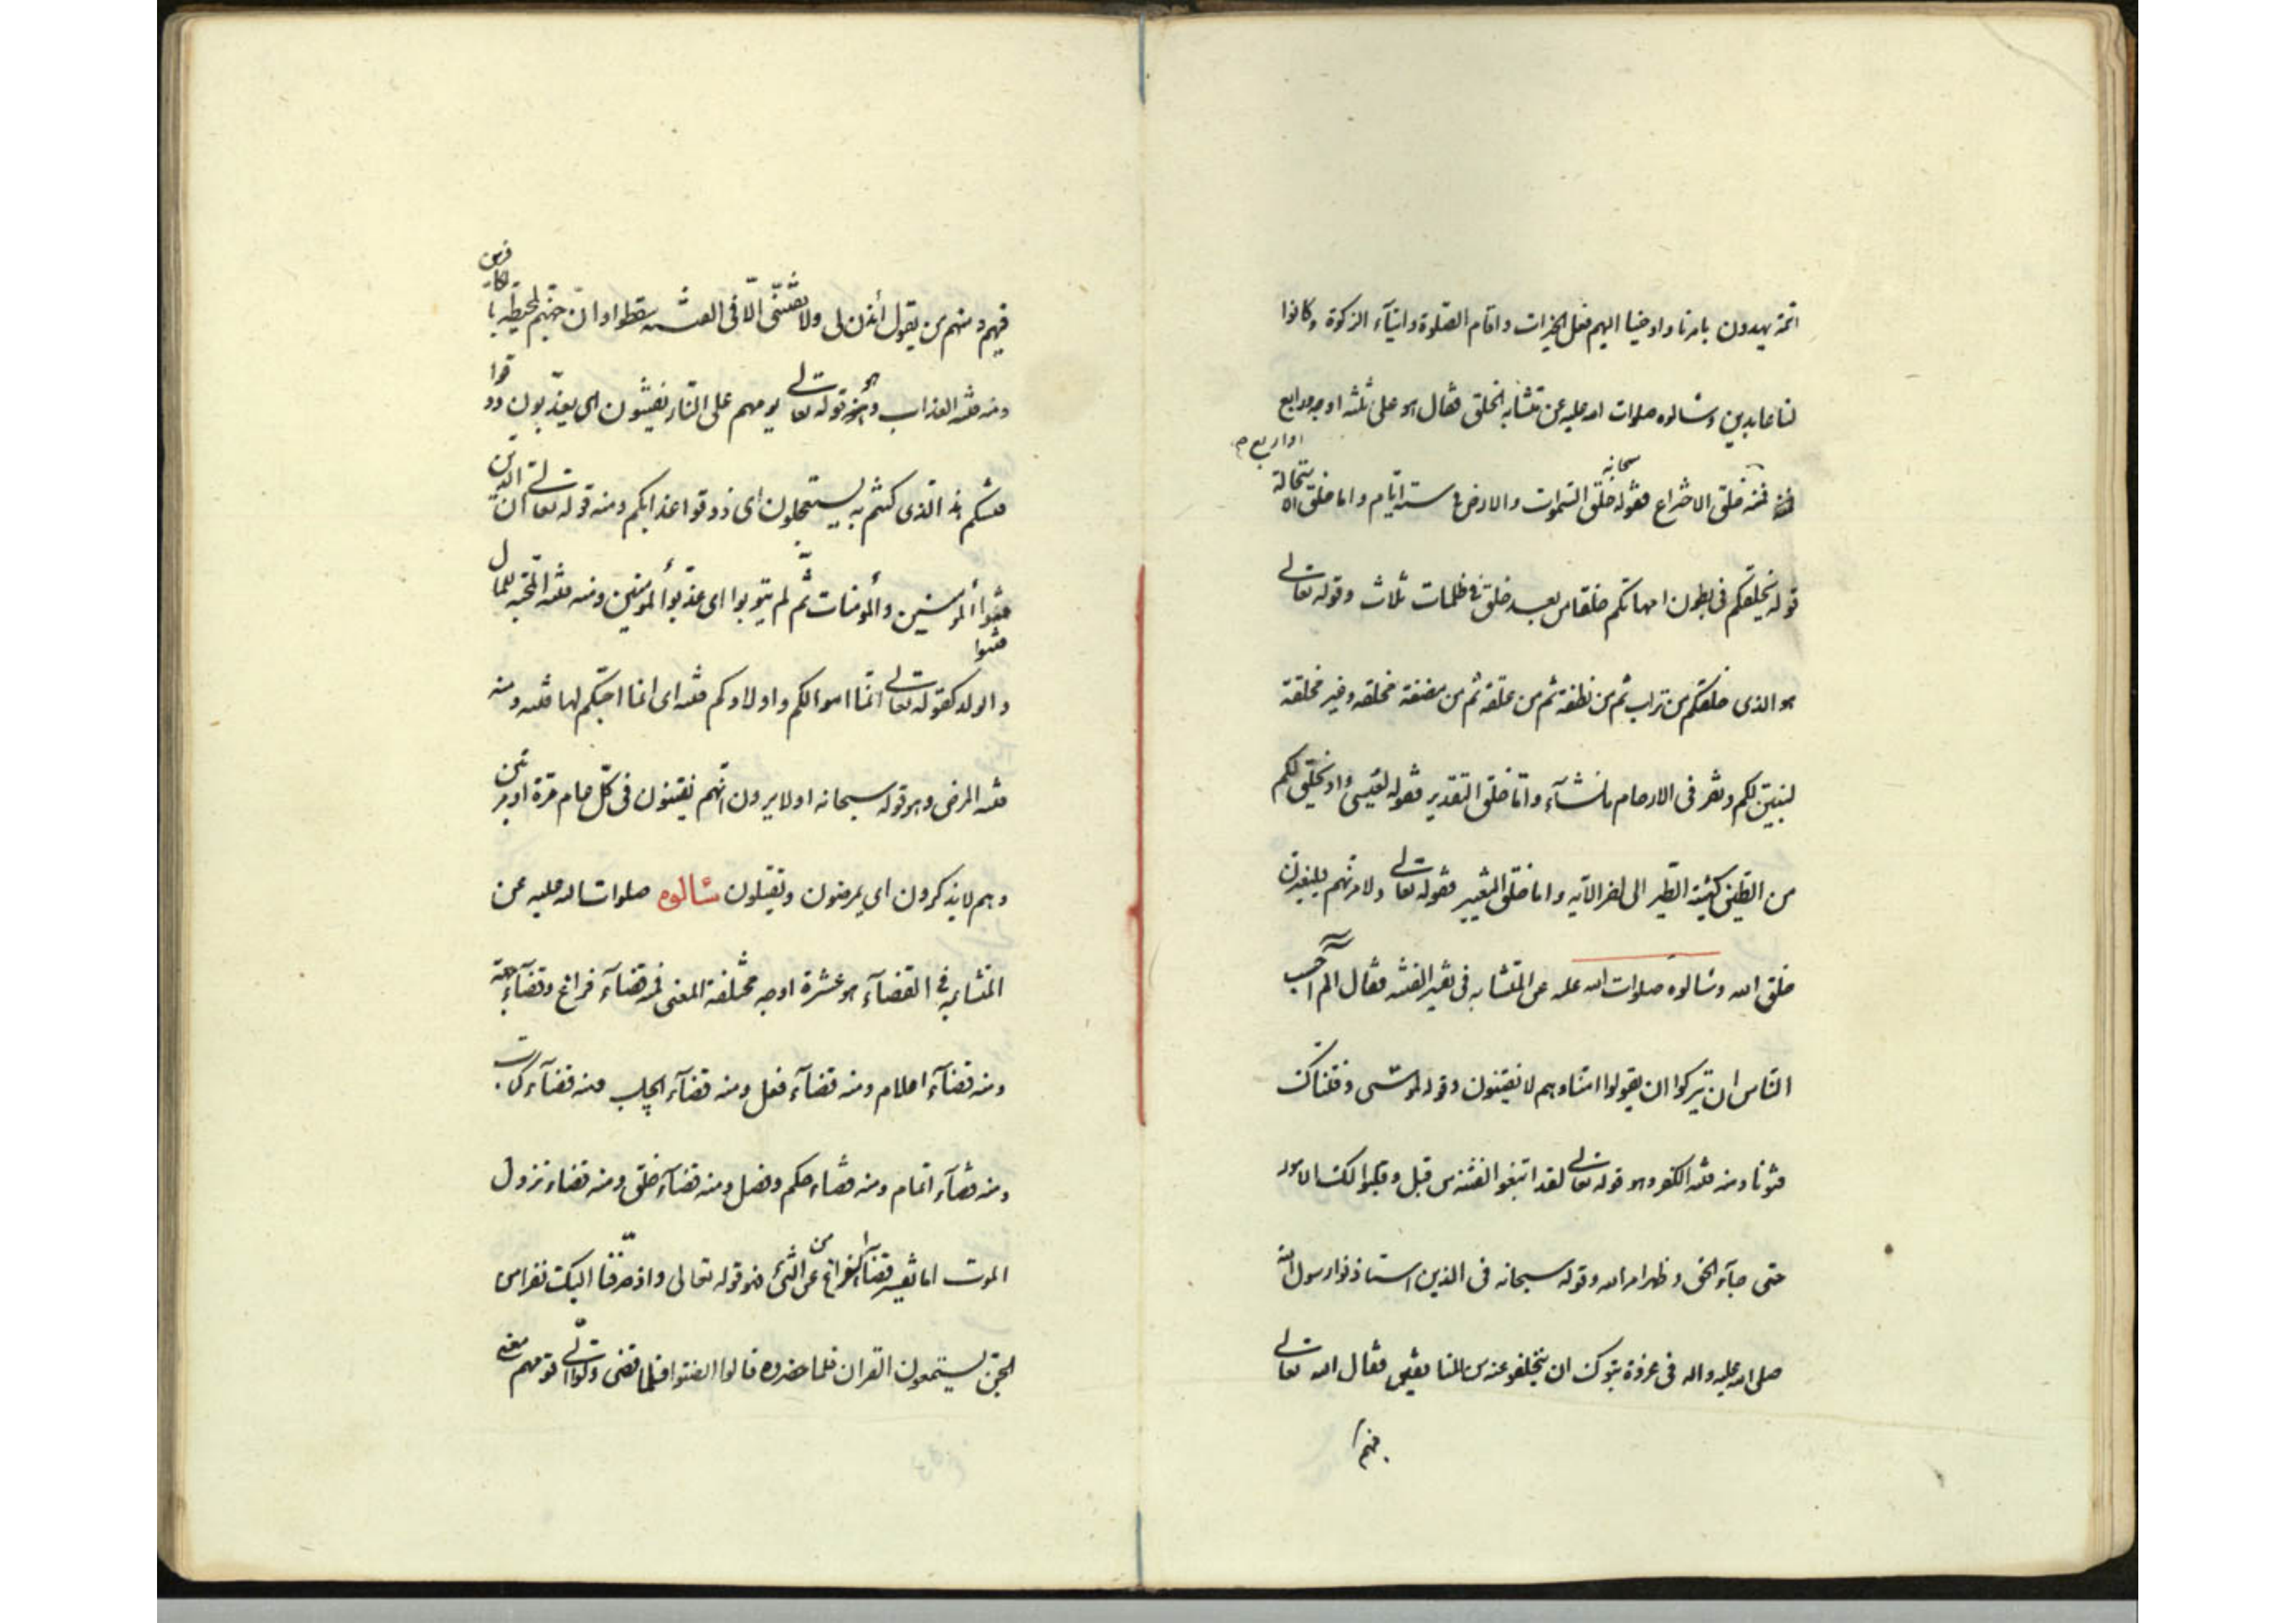 ائمة يهدون بامرنا و اوحينا اليهم فعل الخيرات و اقام الصلوة و ايتآء الزكوة و كانوا
لنا عابدين و سالوه صلوات الله عليه عن متشابه الخلق فقال هو على ثلثه اوجه و رابع
او اربع م
فمنه خلق الاختراع فقوله سبحانه خلق السموات و الارض فى ستة ايام و اما خلق الاستحالة
قوله يخلقكم فى بطون امهاتكم خلقا من بعد خلق فى ظلمات ثلاث و قوله تعالى
هو الذى خلقكم من تراب ثم من نطفة ثم من علقة ثم من مضغة مخلقه و غير مخلقة
لنبين لكم و نقر فى الارحام ما نشآء و اما خلق التقدير فقوله لعيسى و اذ تخلق لكم
من الطين كهيئة الطير الى اخر الآيه و اما خلق التغيير فقوله تعالى و لامرنهم فليغيرن
خلق الله و سالوه صلوات الله عليه عن المتشابه فى تفسير الفتنه فقال الم احسب
الناس ان يتركوا ان يقولوا امنا و هم لا يفتنون و قوله لموسى و فتناك
فتونا و منه فتنه الكفر و هو قوله تعالى لقد ابتغوا الفتنه من قبل و قلبوا لك الامور
حتى جآء الحق و ظهر امر الله و قوله سبحانه فى الذين استاذنوا رسول الله
صلى الله عليه و اله فى غزوة تبوك ان يتخلفو عنه من المنافقين فقال الله تعالى
فيهم
فيهم و منهم من يقول أئذن لى و لا تفتنّى الّا فى الفتنه سقطوا و ان جهنم لمحيطة بالكافرين
و منه فتنه العذاب و هو قوله تعالى يوم هم على النار يفتنون اى يعذّبون ذوقوا
فتنتكم هذا الذى كنتم به تستعجلون اى ذوقوا عذابكم و منه قوله تعالى ان الذين
فتنوا المومنين و المومنات ثّم لم يتوبوا اى عذبوا المومنين و منه فتنه المحبه للمال
فتنوا
و الولد كقوله تعالى انّما اموالكم و اولادكم فتنه اى انما احبكم لها فتنه و منه
فتنه المرض و هو قوله سبحانه اولا يرون انّهم يفتنون فى كلّ عام مرّة او مرتين
و هم لا يذكرون اى يمرضون و يقتلون سالوه صلوات الله عليه عن
المتشابه فى القضآء هو عشرة اوجه مختلفة المعنى فمنه قضآء فراغ و قضآء
و منه قضآء اعلام و منه قضآء فعل و منه قضآء ايجاب و منه قضآء كتاب
و منه قضآء اتمام و منه قضاء حكم و فصل و منه قضآء خلق و منه قضاء نزول
الموت اما تفسير قضاء الفراغ من عن الشئ فهو قوله تعالى و اذ صرفنا اليك نفرا من
الجن يستمعون القران فلما حضروه قالوا انصتوا فلما قضى ولّوا الى قومهم